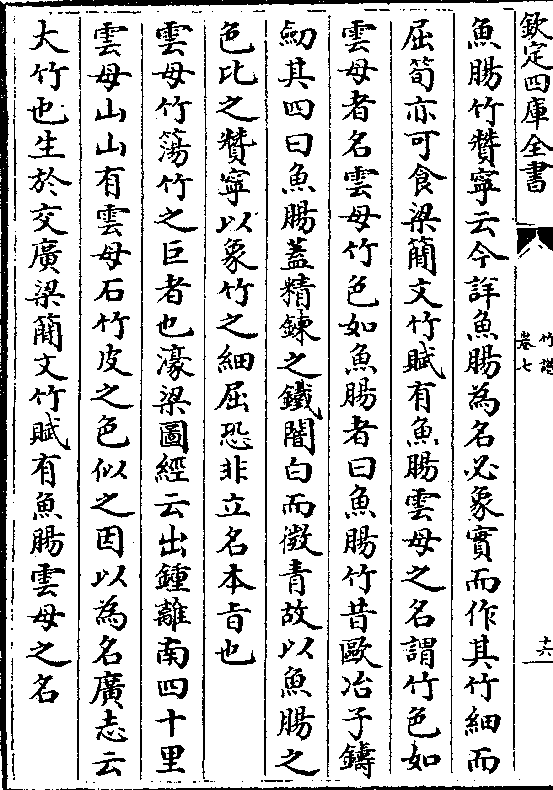 欽定四庫全書
竹譜
卷七
十六
魚腸竹贊寧云今詳魚腸為名必象實而作其竹細而
屈筍亦可食梁簡文竹賦有魚腸雲母之名謂竹色如
雲母者名雲母竹色如魚腸者曰魚腸竹昔歐冶子鑄
劒其四曰魚腸蓋精鍊之鐵闇白而微青故以魚腸之
色比之贊寧以象竹之細屈恐非立名本旨也
雲母竹簜竹之巨者也濠梁圖經云出鍾離南四十里
雲母山山有雲母石竹皮之色似之因以為名廣志云
大竹也生於交廣梁簡文竹賦有魚腸雲母之名